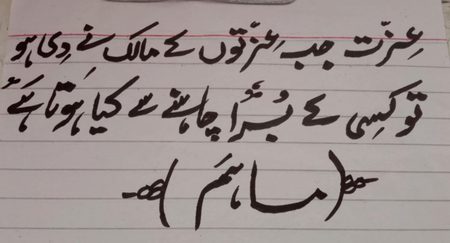 عِزّت جب عِزّتوں کے مالک نے دِی ہو
تو کسِی کے بُرا چاہنے سے کیا ہَوتا ہَے
(ماہم)